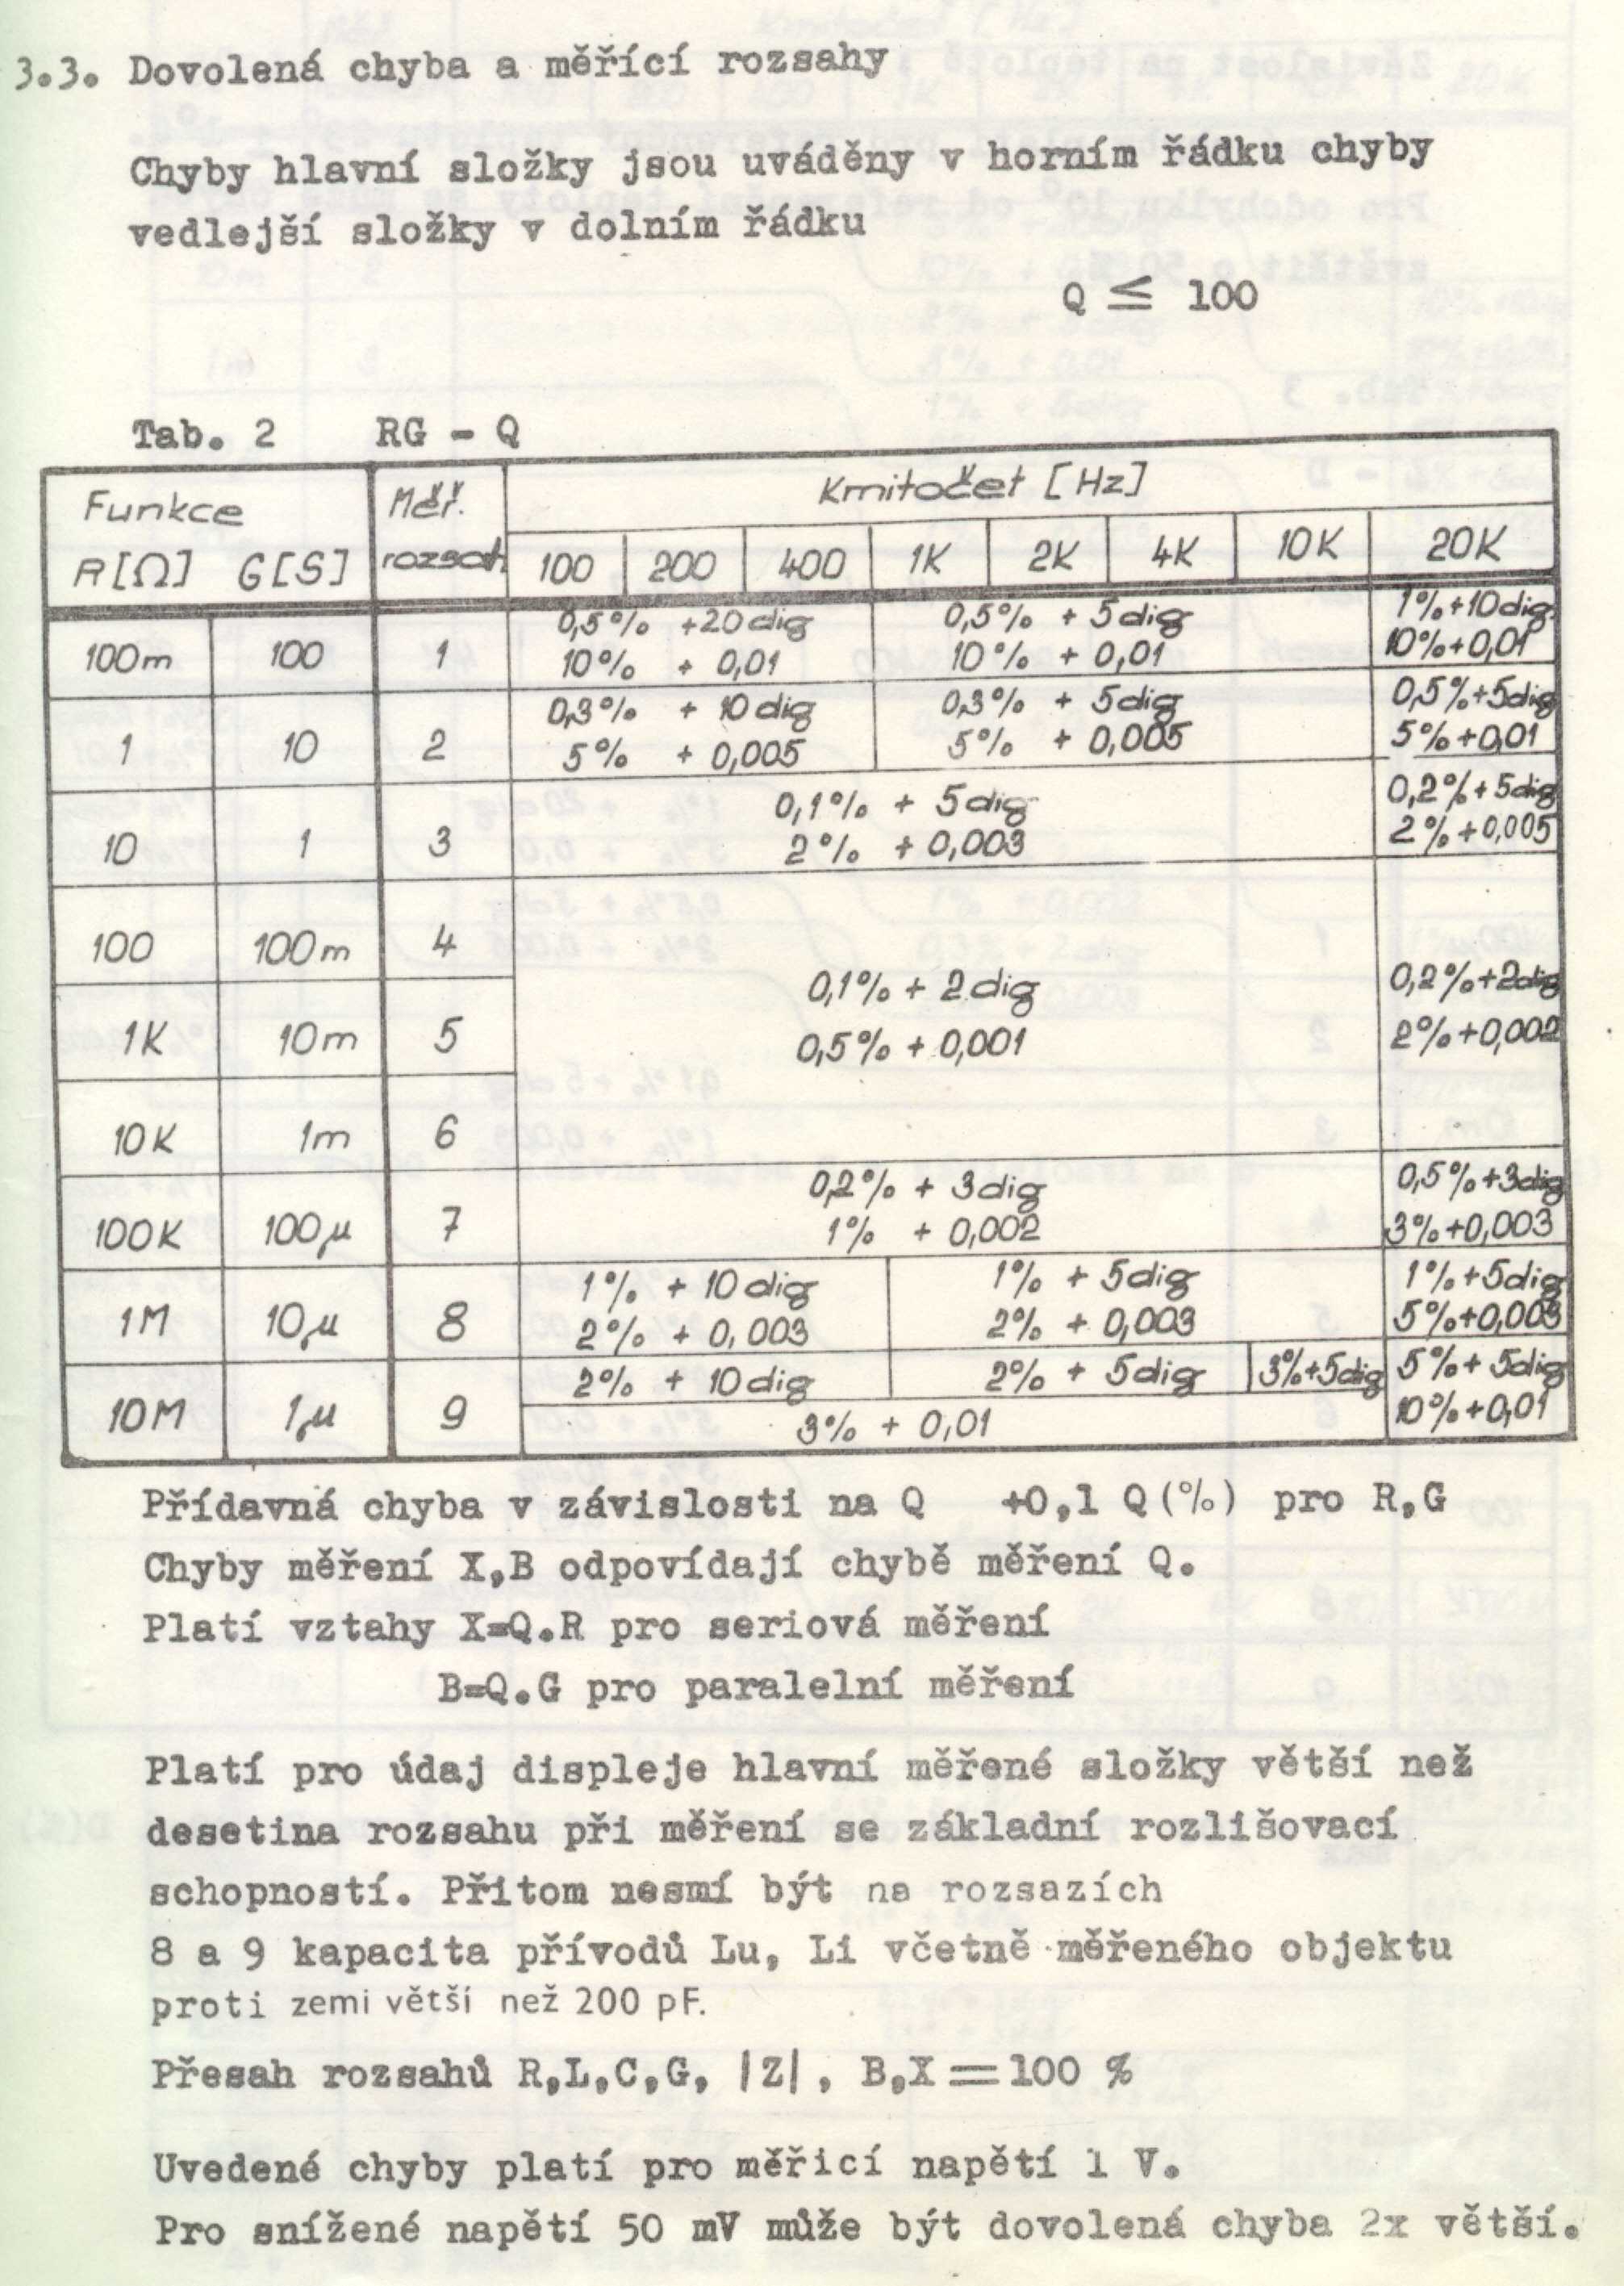 3.3. Dovolená chyba a měřící rozsahy
Chyby hlavní složky jsou uváděny v horním řádku chyby
vedlejší složky v dolním řádku
Q ≤ 100
Tab. 2 RG - Q
Funkce Měř. Kmitočet [Hz]
R[Ω] G[S] rozsah 100 200 400 1K 2K 4K 10K 20K
0,5% +20dig 0,5% + 5dig 1%+10dig
100m 100 1 10% + 0,01 10% + 0,01 10%+0,01
0,3% + 10dig 0,3% + 5dig 0,5%+5dig
1 10 2 5% + 0,005 5% + 0,005 5%+0,01
0,1% + 5dig 0,2%+5dig
10 1 3 2% + 0,003 2%+0,005
100 100m 4
0,1% + 2dig 0,2%+2dig
1K 10m 5 0,5% + 0,001 2%+0,002
10K 1m 6
0,2% + 3dig 0,5%+3dig
100K 100µ 7 1% + 0,002 3%+0,003
1% + 10dig 1% + 5dig 1%+5dig
1M 10µ 8 2% + 0,003 2% + 0,003 5%+0,003
2% + 10dig 2% + 5dig 3%+5dig 5%+5dig
10M 1µ 9 3% + 0,01 10%+0,01
Přídavná chyba v závislosti na Q +0,1 Q(%) pro R,G
Chyby měření X,B odpovídají chybě měření Q.
Platí vztahy X=Q.R pro seriová měření
B=Q.G pro paralelní měření
Platí pro údaj displeje hlavní měřené složky větší než
desetina rozsahu při měření se základní rozlišovací
schopností. Přitom nesmí být na rozsazích
8 a 9 kapacita přívodů Lu, Li včetně měřeného objektu
proti zemi větší než 200 pF.
Přesah rozsahů R,L,C,G, |Z|, B,X = 100 %
Uvedené chyby platí pro měřicí napětí 1 V.
Pro snížené napětí 50 mV může být dovolená chyba 2x větší.